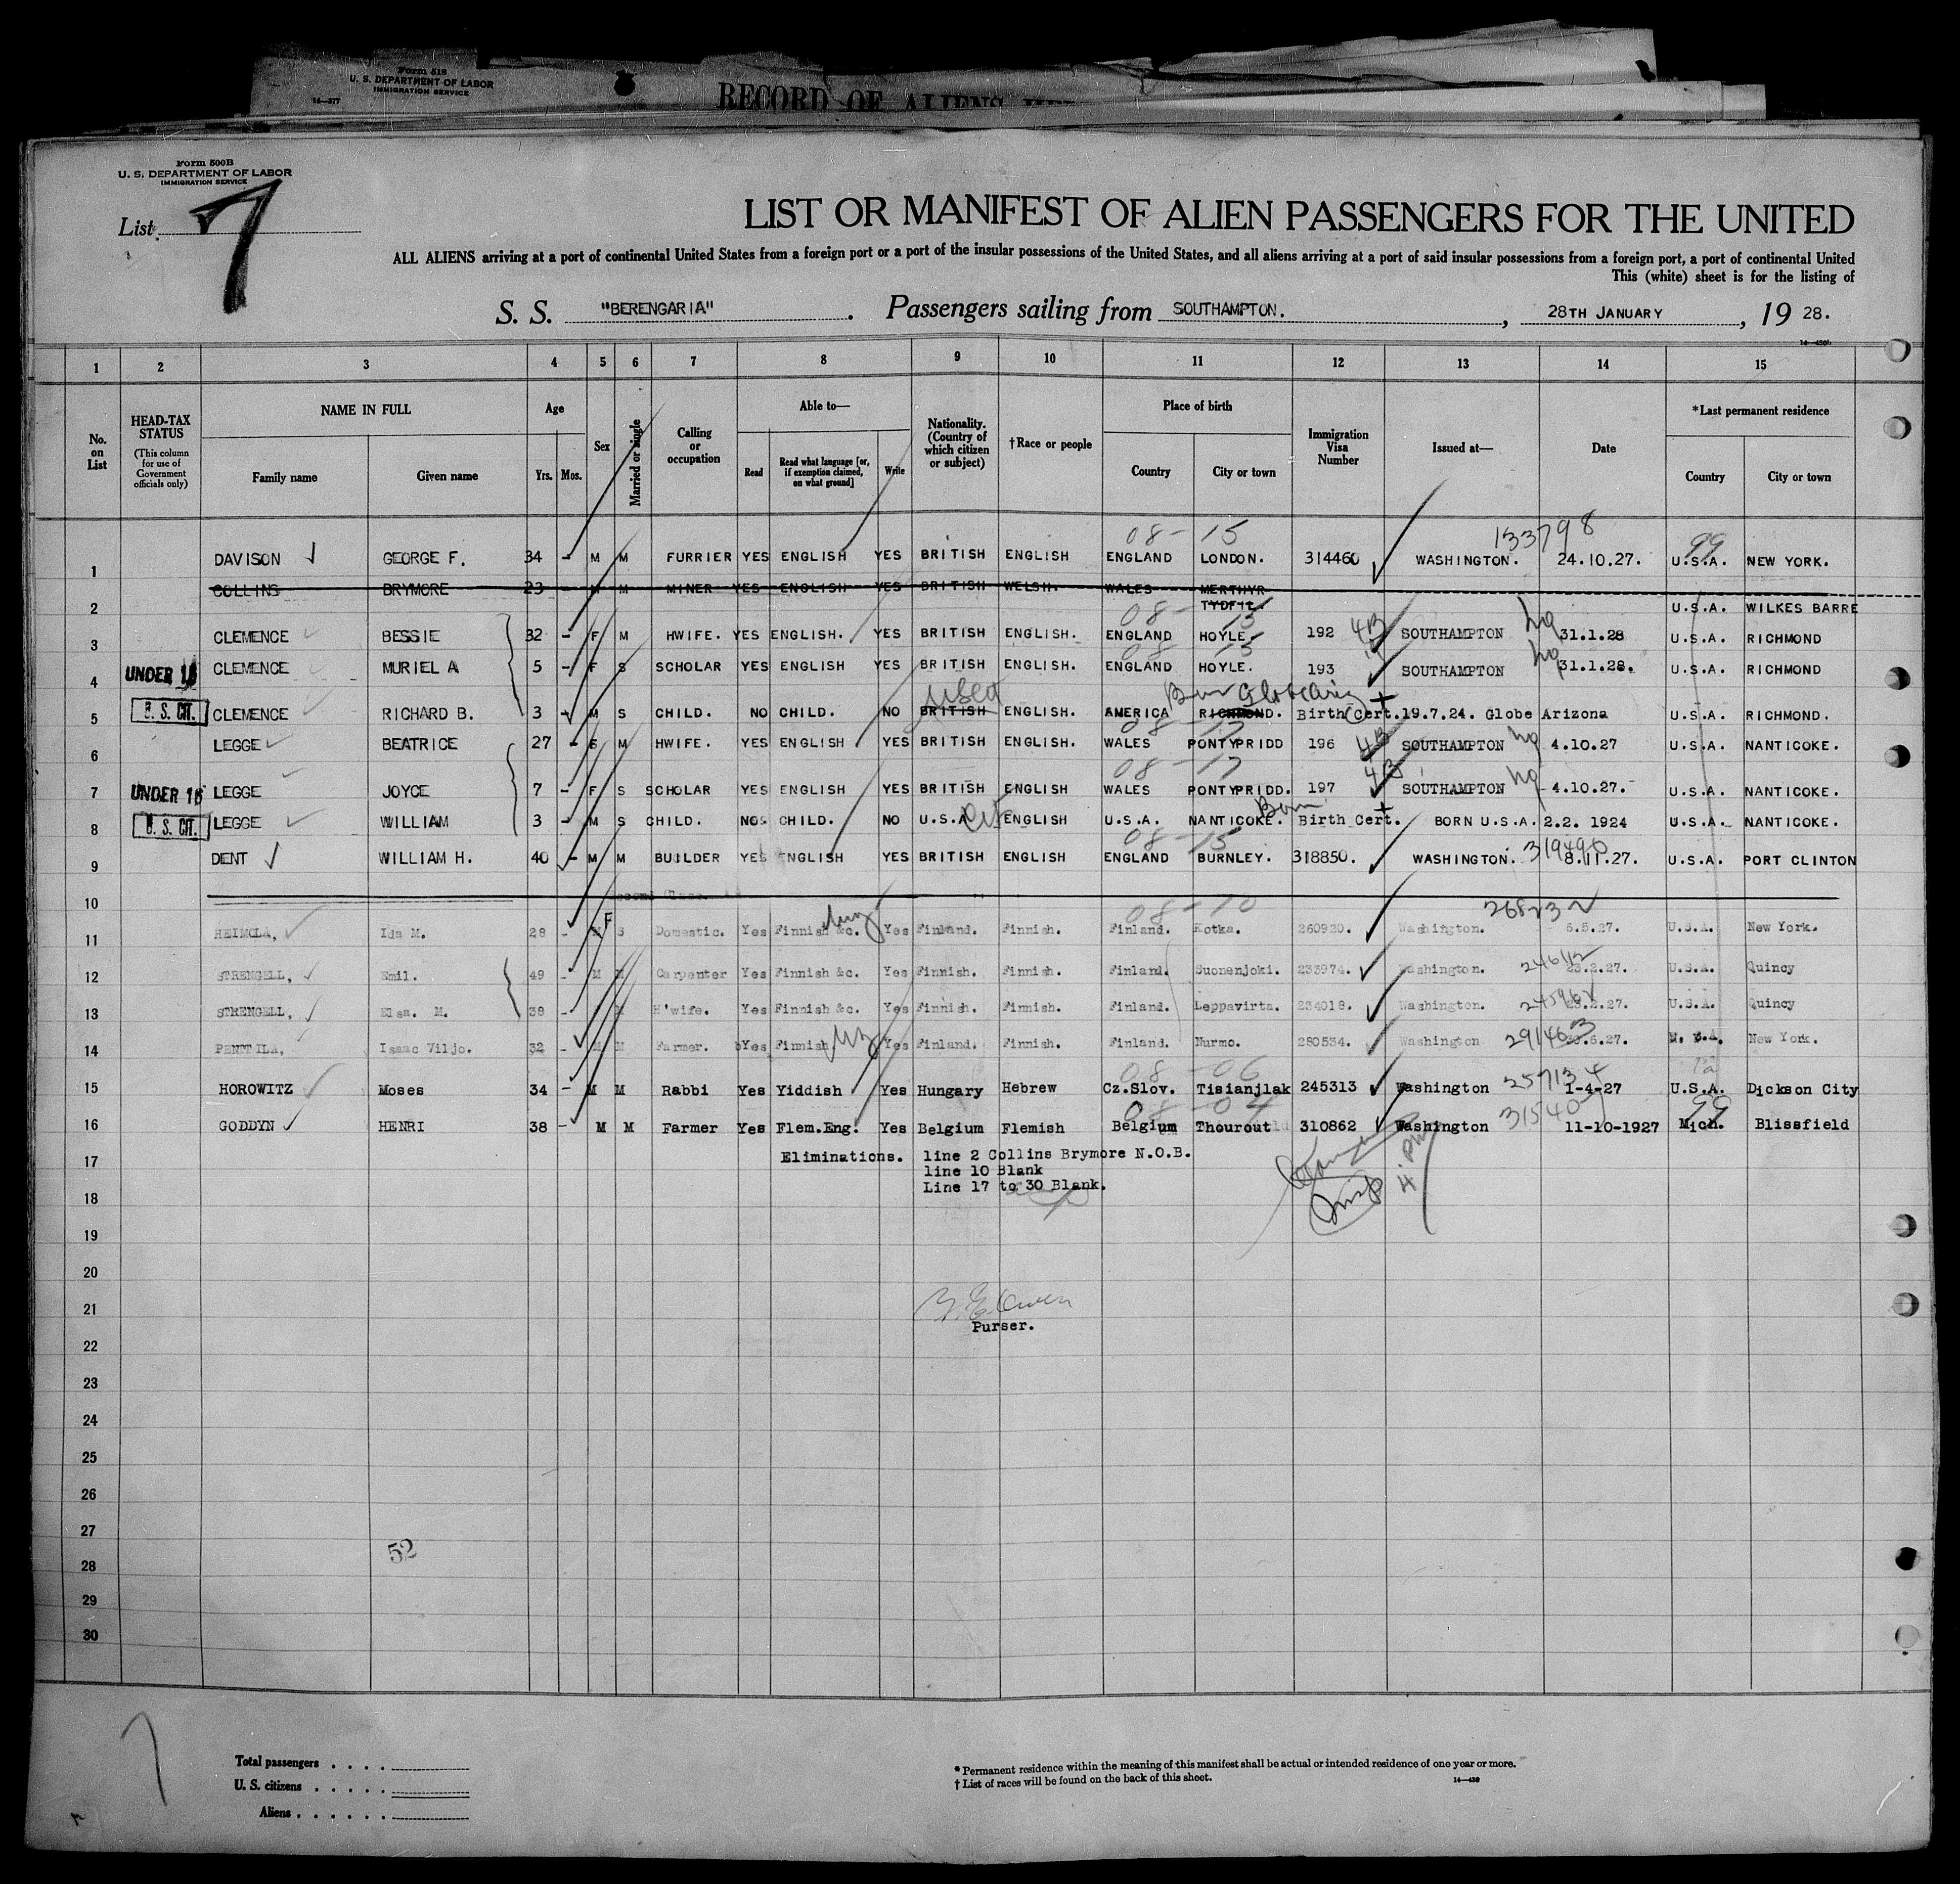 Form 518
U. S. DEPARTMENT OF LABOR
IMMIGRATION SERVICE
14—377
RECORD OF ALIENS
Form 500B
U. S. DEPARTMENT OF LABOR
IMMIGRATION SERVICE
List 7
LIST OR MANIFEST OF ALIEN PASSENGERS FOR THE UNITED
ALL ALIENS arriving at a port of continental United States from a foreign port or a port of the insular possessions of the United States, and all aliens arriving at a port of said insular possessions from a foreign port, a port of continental United
This (white) sheet is for the listing of
S. S. "BERENGARIA". Passengers sailing from SOUTHAMPTON. , 28TH JANUARY , 19 28.
1 2 3 4 5 6 7 8 9 10 11 12 13 14 15
No. on List
HEAD-TAX STATUS (This column for use of Government officials only)
NAME IN FULL
Family name
Given name
Age
Yrs. Mos.
Sex
Married or single
Calling or occupation
Able to—
Read
Read what language [or, if exemption claimed, on what ground]
Write
Nationality. (Country of which citizen or subject)
†Race or people
Place of birth
Country
City or town
Immigration Visa Number
Issued at—
Date
*Last permanent residence
Country
City or town
08-15 133798 99
1 DAVISON GEORGE F. 34 - M M FURRIER YES ENGLISH YES BRITISH ENGLISH ENGLAND LONDON. 314460 WASHINGTON. 24.10.27. U.S.A. NEW YORK.
2 COLLINS BRYMORE 23 - M M MINER YES ENGLISH YES BRITISH WELSH. WALES MERTHYR TYDFIL. U.S.A. WILKES BARRE
08-15
3 CLEMENCE BESSIE 32 - F M HWIFE. YES ENGLISH. YES BRITISH ENGLISH. ENGLAND HOYLE. 192 4B SOUTHAMPTON 31.1.28 U.S.A. RICHMOND
08 15
4 UNDER 16 CLEMENCE MURIEL A 5 - F S SCHOLAR YES ENGLISH YES BRITISH ENGLISH. ENGLAND HOYLE. 193 SOUTHAMPTON 31.1.28. U.S.A. RICHMOND
5 U. S. CIT. CLEMENCE RICHARD B. 3 - M S CHILD. NO CHILD. NO BRITISH ENGLISH. AMERICA RICHMOND. Birth Cert. 19.7.24. Globe Arizona U.S.A. RICHMOND.
6 LEGGE BEATRICE 27 - F M HWIFE. YES ENGLISH YES BRITISH ENGLISH. WALES PONTYPRIDD 196 4B SOUTHAMPTON 4.10.27 U.S.A. NANTICOKE.
08-17
7 UNDER 16 LEGGE JOYCE 7 - F S SCHOLAR YES ENGLISH YES BRITISH ENGLISH WALES PONTYPRIDD. 197 4B SOUTHAMPTON 4.10.27. U.S.A. NANTICOKE.
8 U. S. CIT. LEGGE WILLIAM 3 - M S CHILD. NO CHILD. NO U.S.A. ENGLISH U.S.A. NANTICOKE. Born Birth Cert. BORN U.S.A. 2.2. 1924 U.S.A. NANTICOKE.
08-15
9 DENT WILLIAM H. 40 - M M BUILDER YES ENGLISH YES BRITISH ENGLISH ENGLAND BURNLEY. 318850. WASHINGTON. 319490 8.11.27. U.S.A. PORT CLINTON
10 Second Class.
08-10 268232
11 HEIMOLA, Ida M. 28 - F S Domestic. Yes Finnish &c. Yes Finland. Finnish. Finland. Kotka. 260920. Washington. 6.5.27. U.S.A. New York.
12 STRENGELL, Emil. 49 - M M Carpenter Yes Finnish &c. Yes Finnish. Finnish. Finland. Suonenjoki. 233974. Washington. .2.27. U.S.A. Quincy
13 STRENGELL, Elsa. M. 38 - M H'wife. Yes Finnish &c. Yes Finnish. Finnish. Finland. Leppavirta. 234018. Washington. .2.27. U.S.A. Quincy
14 PENTTILA, Isaac Viljo. 32 - M M Farmer. Yes Finnish Yes Finland. Finnish. Finland. Nurmo. 280534. Washington 291463 .6.27. New York.
08-06
15 HOROWITZ Moses 34 - M M Rabbi Yes Yiddish Yes Hungary Hebrew Cz.Slov. Tisianjlak 245313 Washington 257134 1-4-27 U.S.A. Dickson City
08-04 99
16 GODDYN HENRI 38 - M M Farmer Yes Flem.Eng. Yes Belgium Flemish Belgium Thourout 310862 Washington 11-10-1927 Mich. Blissfield
17 Eliminations. line 2 Collins Brymore N.O.B.
line 10 Blank
18 Line 17 to 30 Blank.
19
20
21
Purser.
22
23
24
25
26
27
52
28
29
30
Total passengers . . . .
U. S. citizens . . . . .
Aliens . . . . . .
* Permanent residence within the meaning of this manifest shall be actual or intended residence of one year or more.
† List of races will be found on the back of this sheet.
14—430